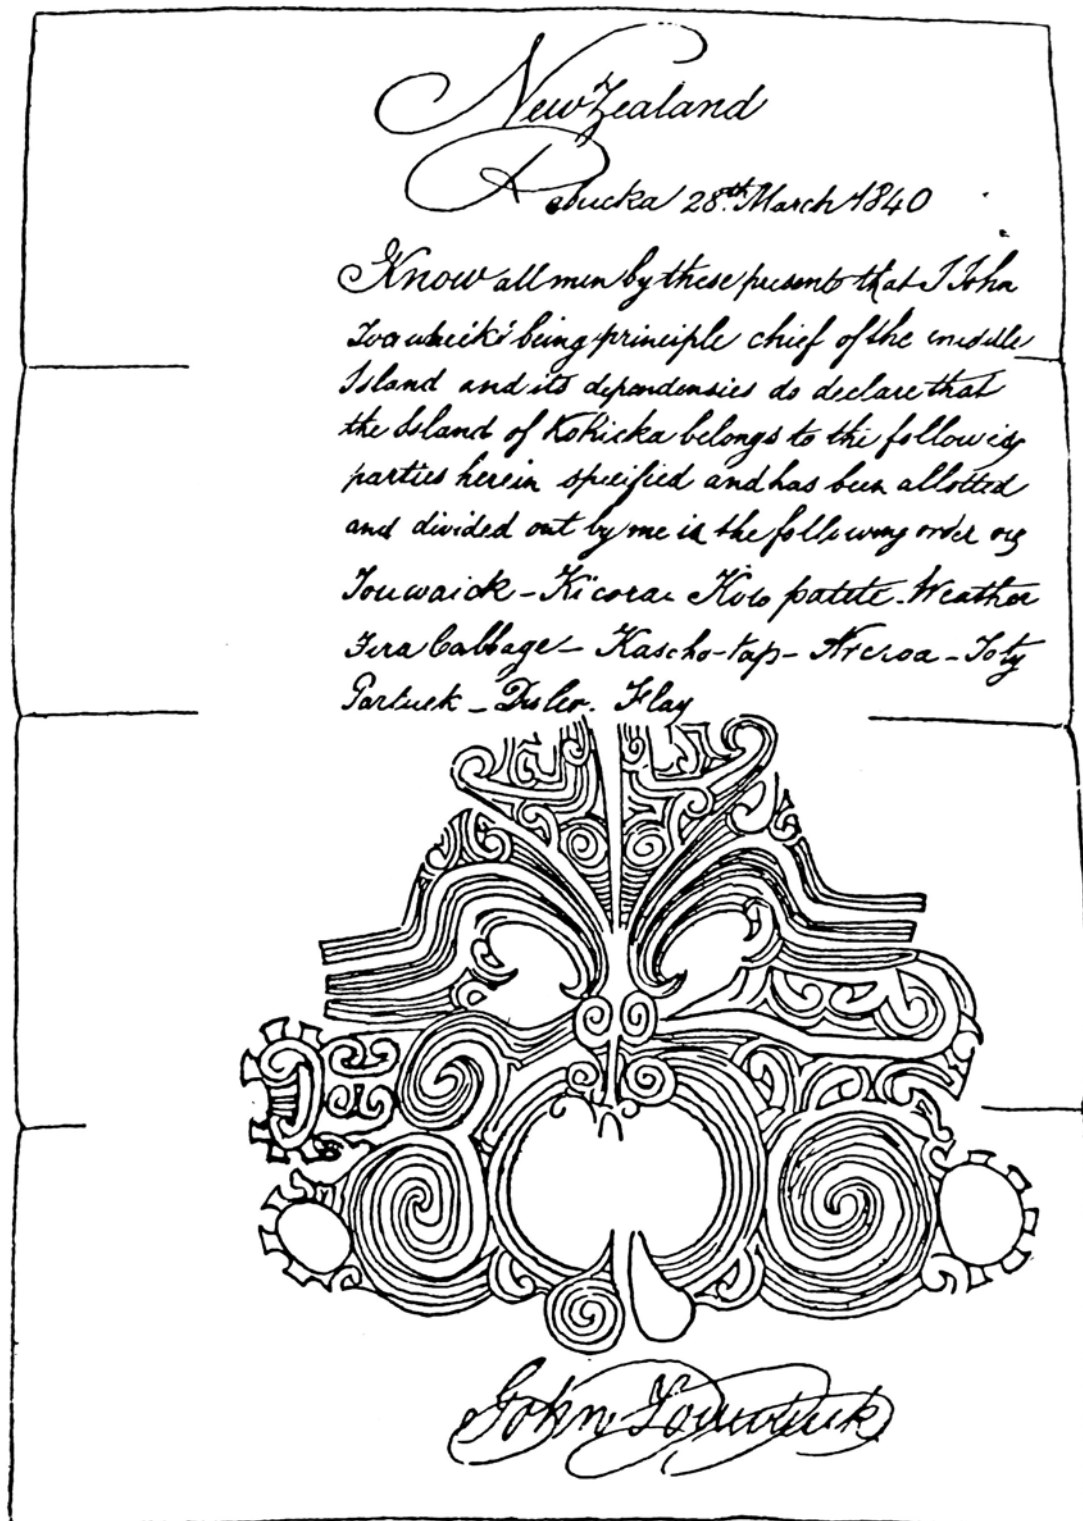 New Zealand
Robucka 28th March 1840
Know all men by these presents that I John
being principle chief of the middle
Island and its dependensies do declare that
the Island of Kohicka belongs to the following
parties herein specified and has been allotted
and divided out by me in the following order
Touwaick - Kicora Patete Weather
Cabbage - Kascho-tap - - Toty
Partuck - Flag
John